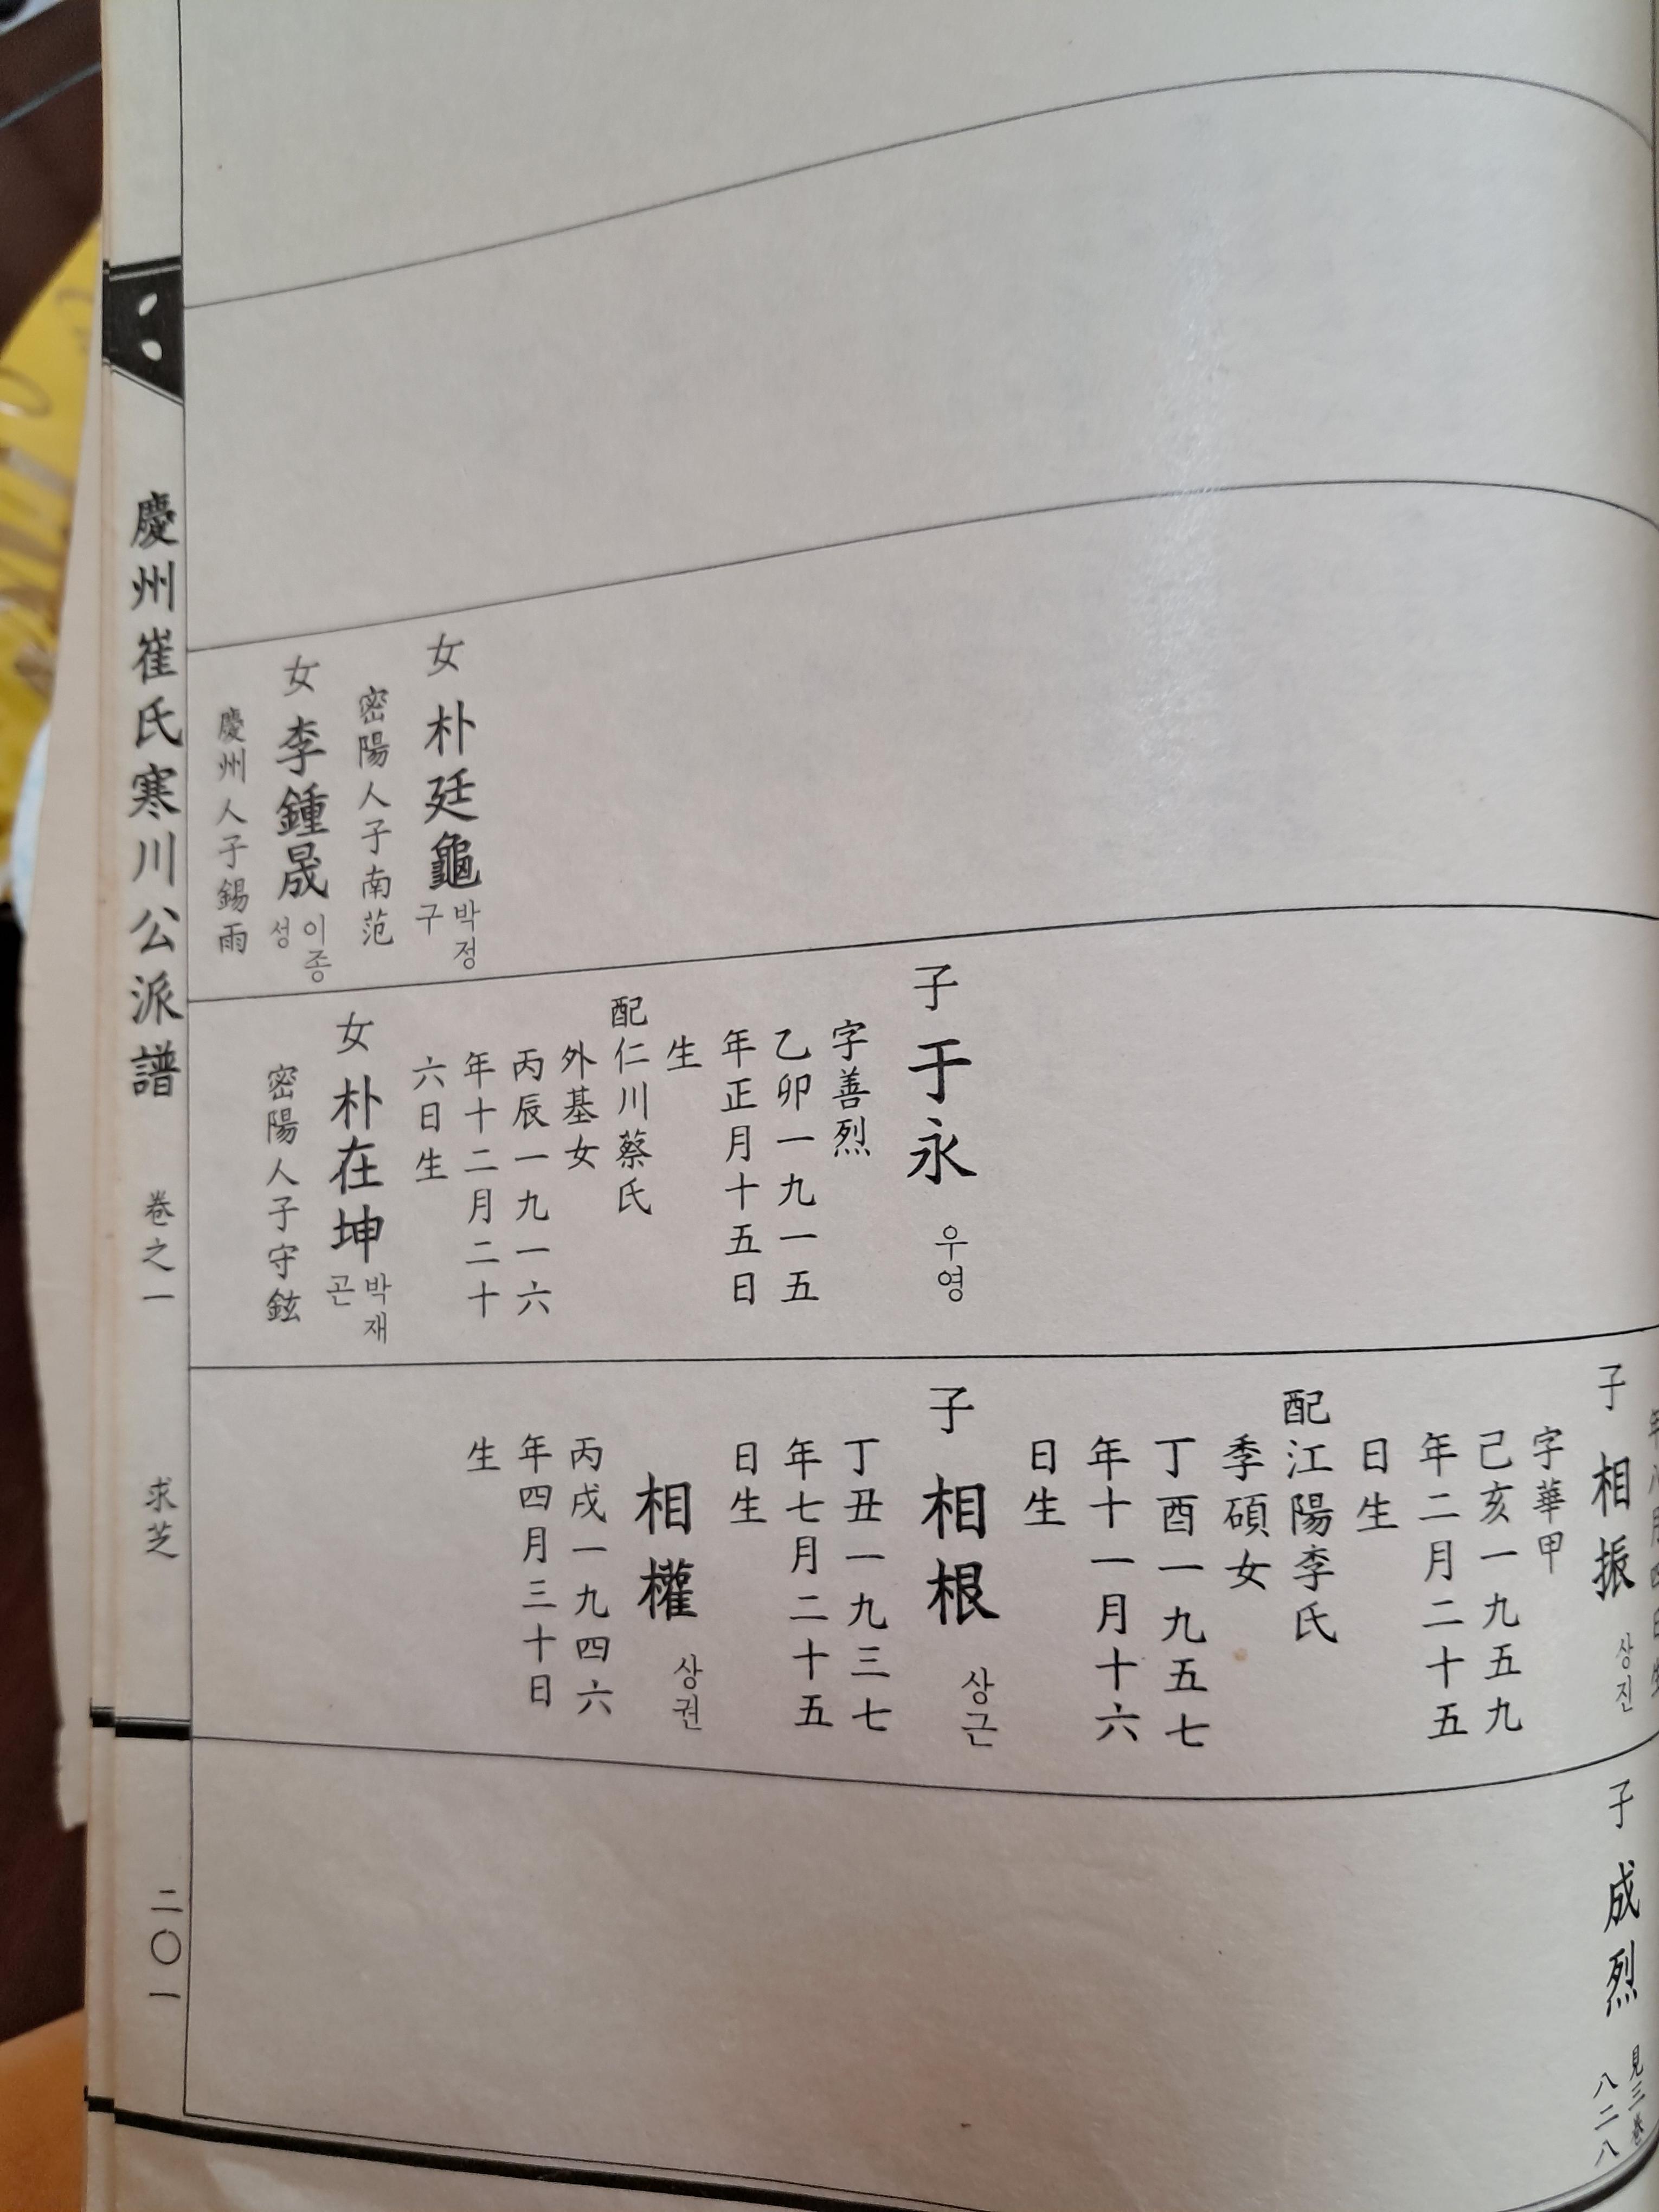 女 朴廷龜 박정구
密陽人子南范
女 李鍾晟 이종성
慶州人子錫雨
子 于永 우영
字善烈
乙卯一九一五
年正月十五日
生
配仁川蔡氏
外基女
丙辰一九一六
年十二月二十
六日生
女 朴在坤 박재곤
密陽人子守鉉
子 相振 상진
字華甲
己亥一九五九
年二月二十五
日生
配江陽李氏
季碩女
丁酉一九五七
年十一月十六
日生
子 相根 상근
丁丑一九三七
年七月二十五
日生
相權 상권
丙戌一九四六
年四月三十日
生
子 成烈 見三卷
八二八
慶州崔氏寒川公派譜 卷之一 求芝 二〇一